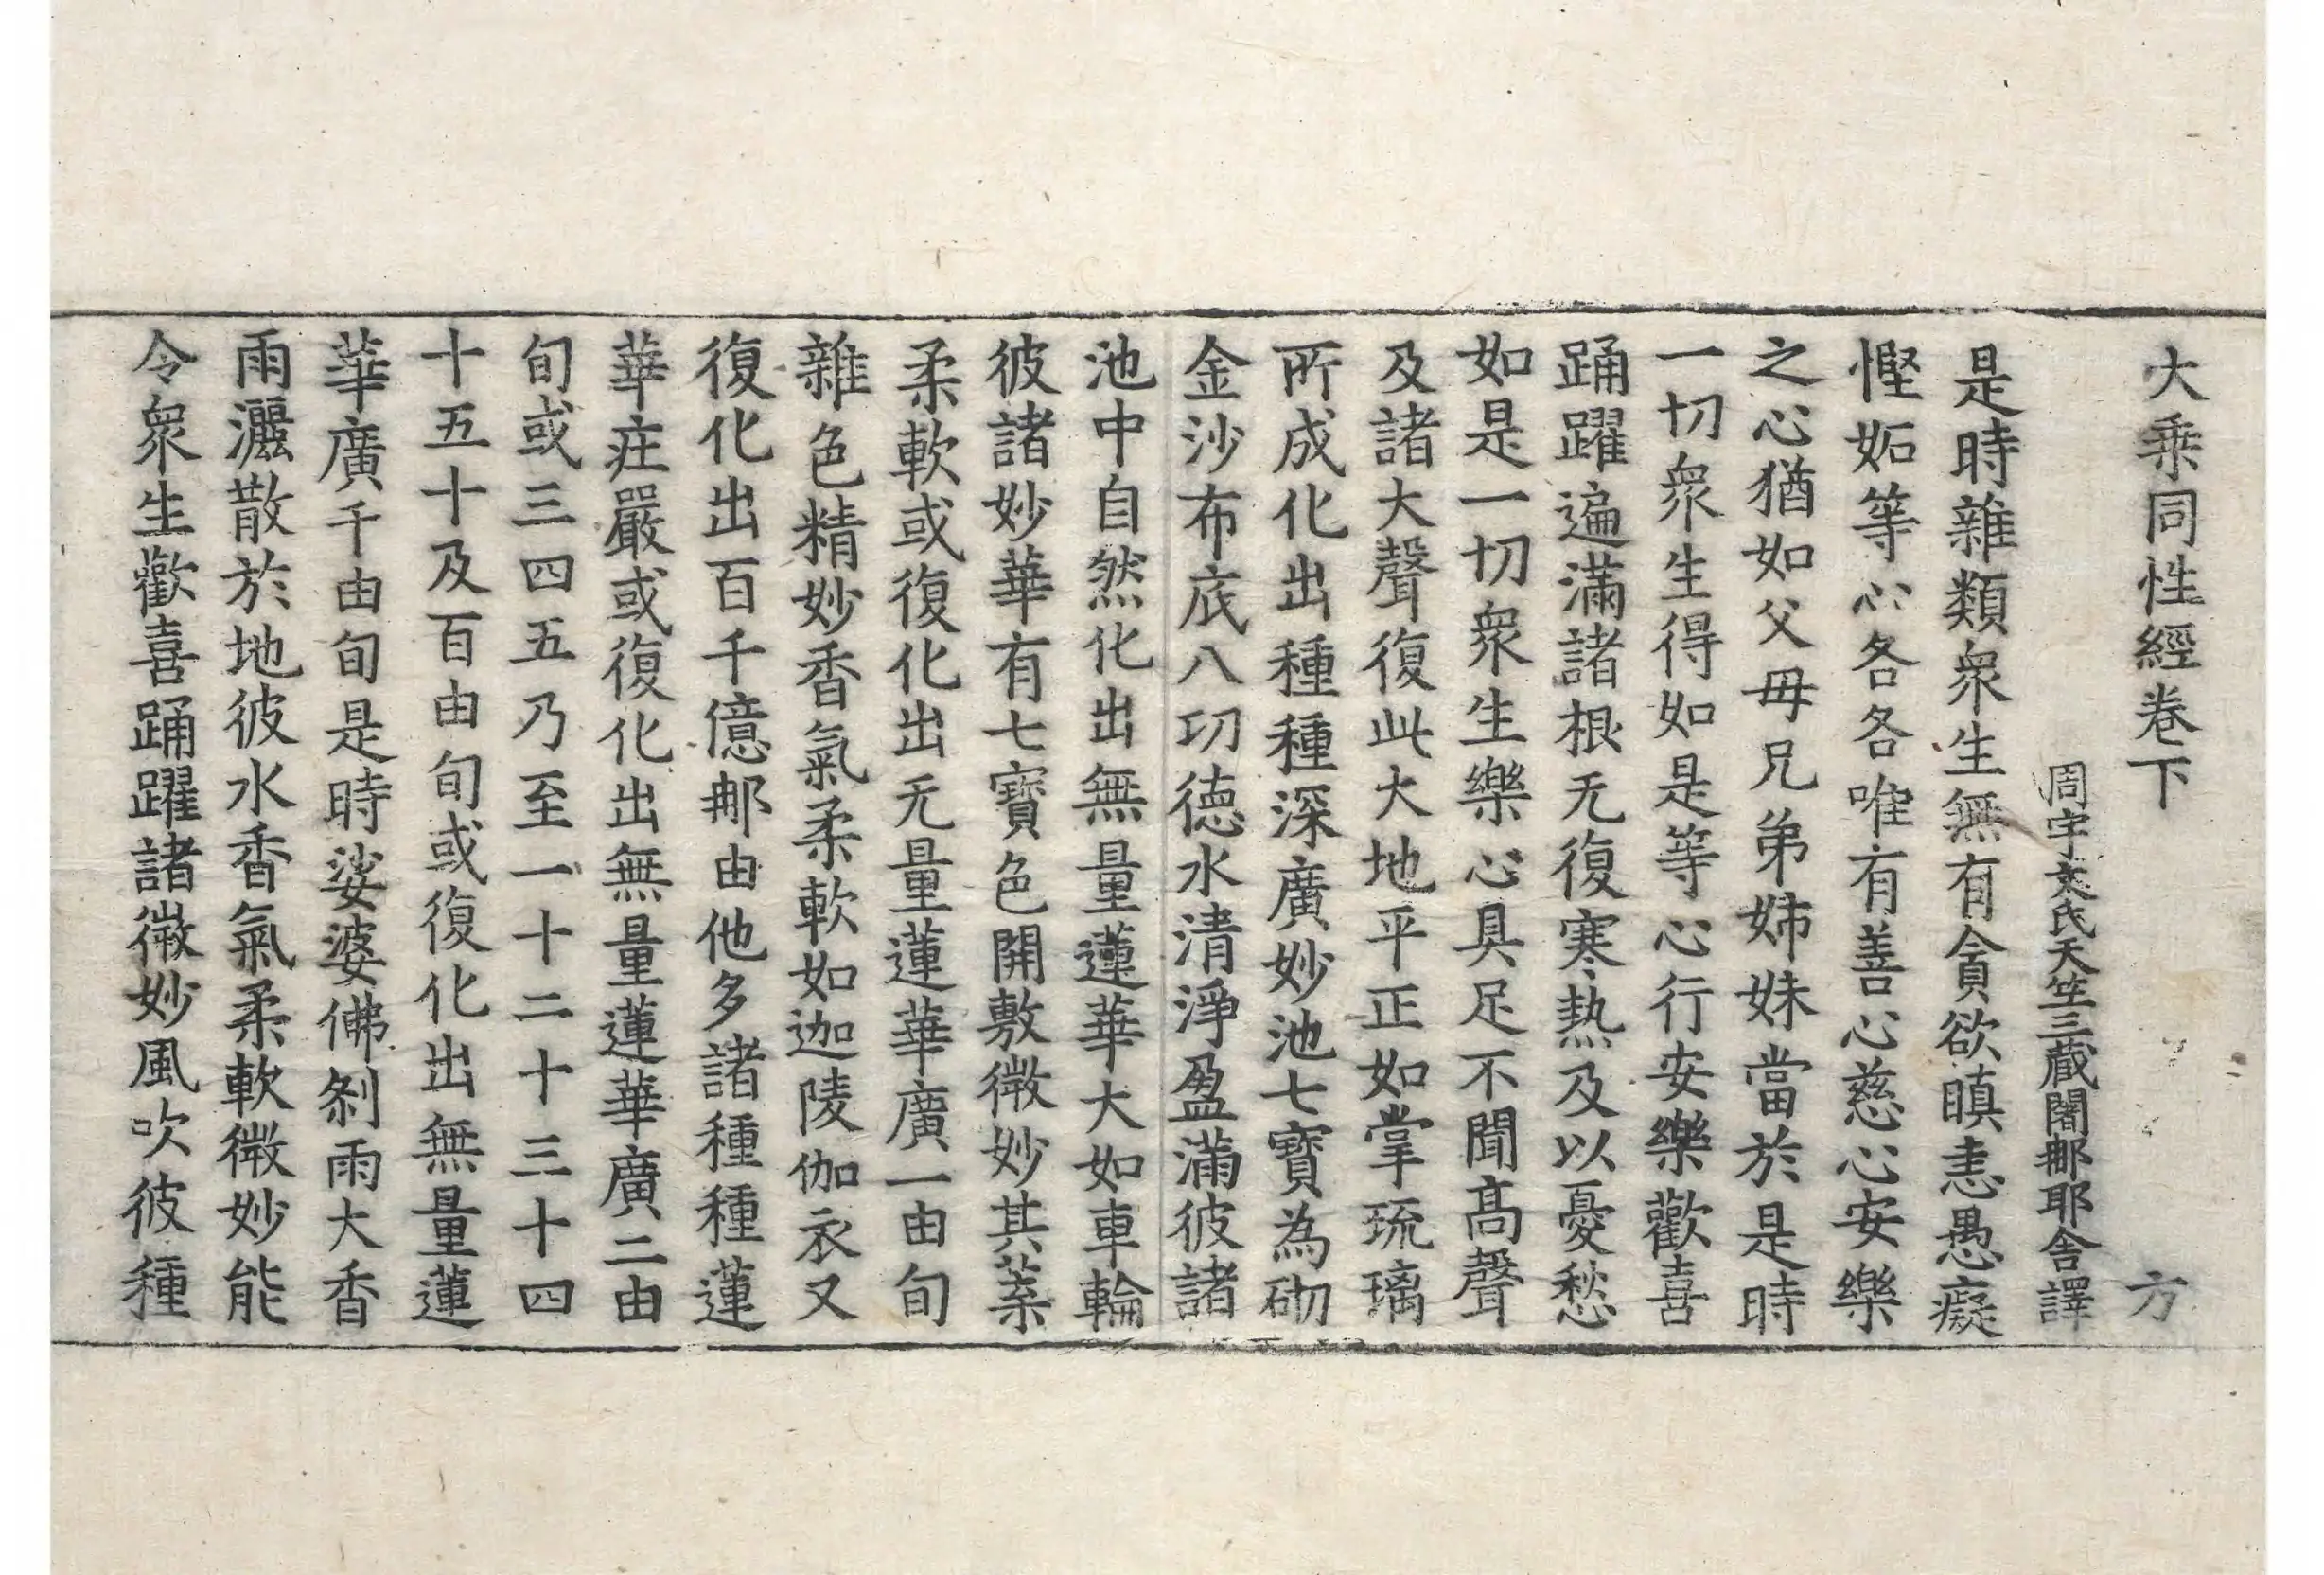 大乘同性經卷下 方
周宇文氏天竺三藏闍那耶舍譯
是時雜類衆生無有貪欲瞋恚愚癡
慳妬等心各各唯有善心慈心安樂
之心猶如父母兄弟姉妹當於是時
一切衆生得如是等心行安樂歡喜
踊躍遍滿諸根无復寒熱及以憂愁
如是一切衆生樂心具足不聞高聲
及諸大聲復此大地平正如掌琉璃
所成化出種種深廣妙池七寶為砌
金沙布底八功德水清淨盈滿彼諸
池中自然化出無量蓮華大如車輪
彼諸妙華有七寶色開敷微妙其葉
柔軟或復化出无量蓮華廣一由旬
雜色精妙香氣柔軟如迦陵伽衣又
復化出百千億那由他多諸種種蓮
華莊嚴或復化出無量蓮華廣二由
旬或三四五乃至一十二十三十四
十五十及百由旬或復化出無量蓮
華廣千由旬是時娑婆佛刹雨大香
雨灑散於地彼水香氣柔軟微妙能
令衆生歡喜踊躍諸微妙風吹彼種